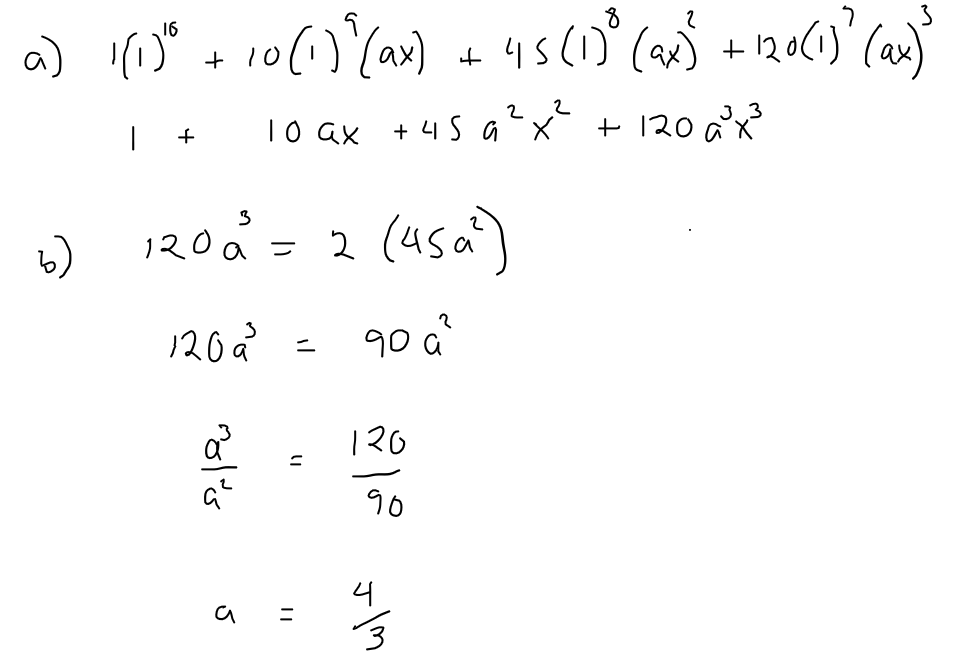 a) 1(1)^10 + 10(1)^9(ax) + 45(1)^8(ax)^2 + 120(1)^7(ax)^3
1 + 10ax + 45a^2x^2 + 120a^3x^3
b) 120a^3 = 2(45a^2)
120a^3 = 90a^2
a^3/a^2 = 120/90
a = 4/3